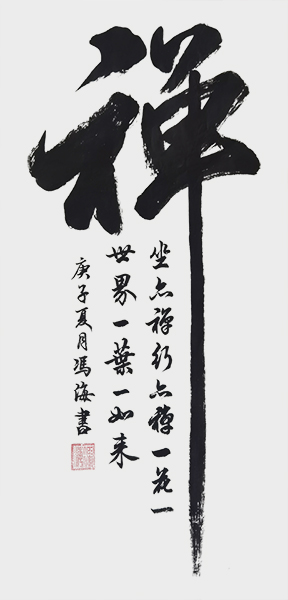 禅
坐亦禅行亦禅一花一
世界一葉一如来
庚子夏月馮海書